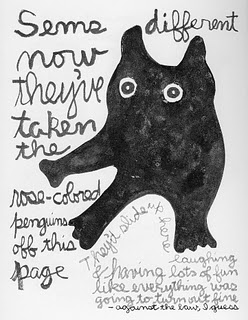 Sems different
now
they've
taken
the
rose-colored
penguins
off this
page
They'd slide here
laughing
& having lots of fun
like everything was
going to turn out fine
- against the law, I guess